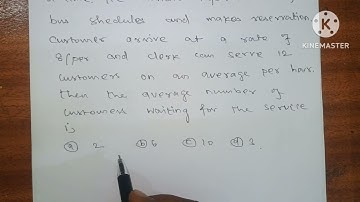 bus shedules and makes reservation
KINEMASTER
Customer arrive at a rate of
8/per and clerk can serve 12
customers on an average per hour.
then the average number of
customers waiting for the service
is
(a) 2 (b) 6 (c) 10 (d) 3.